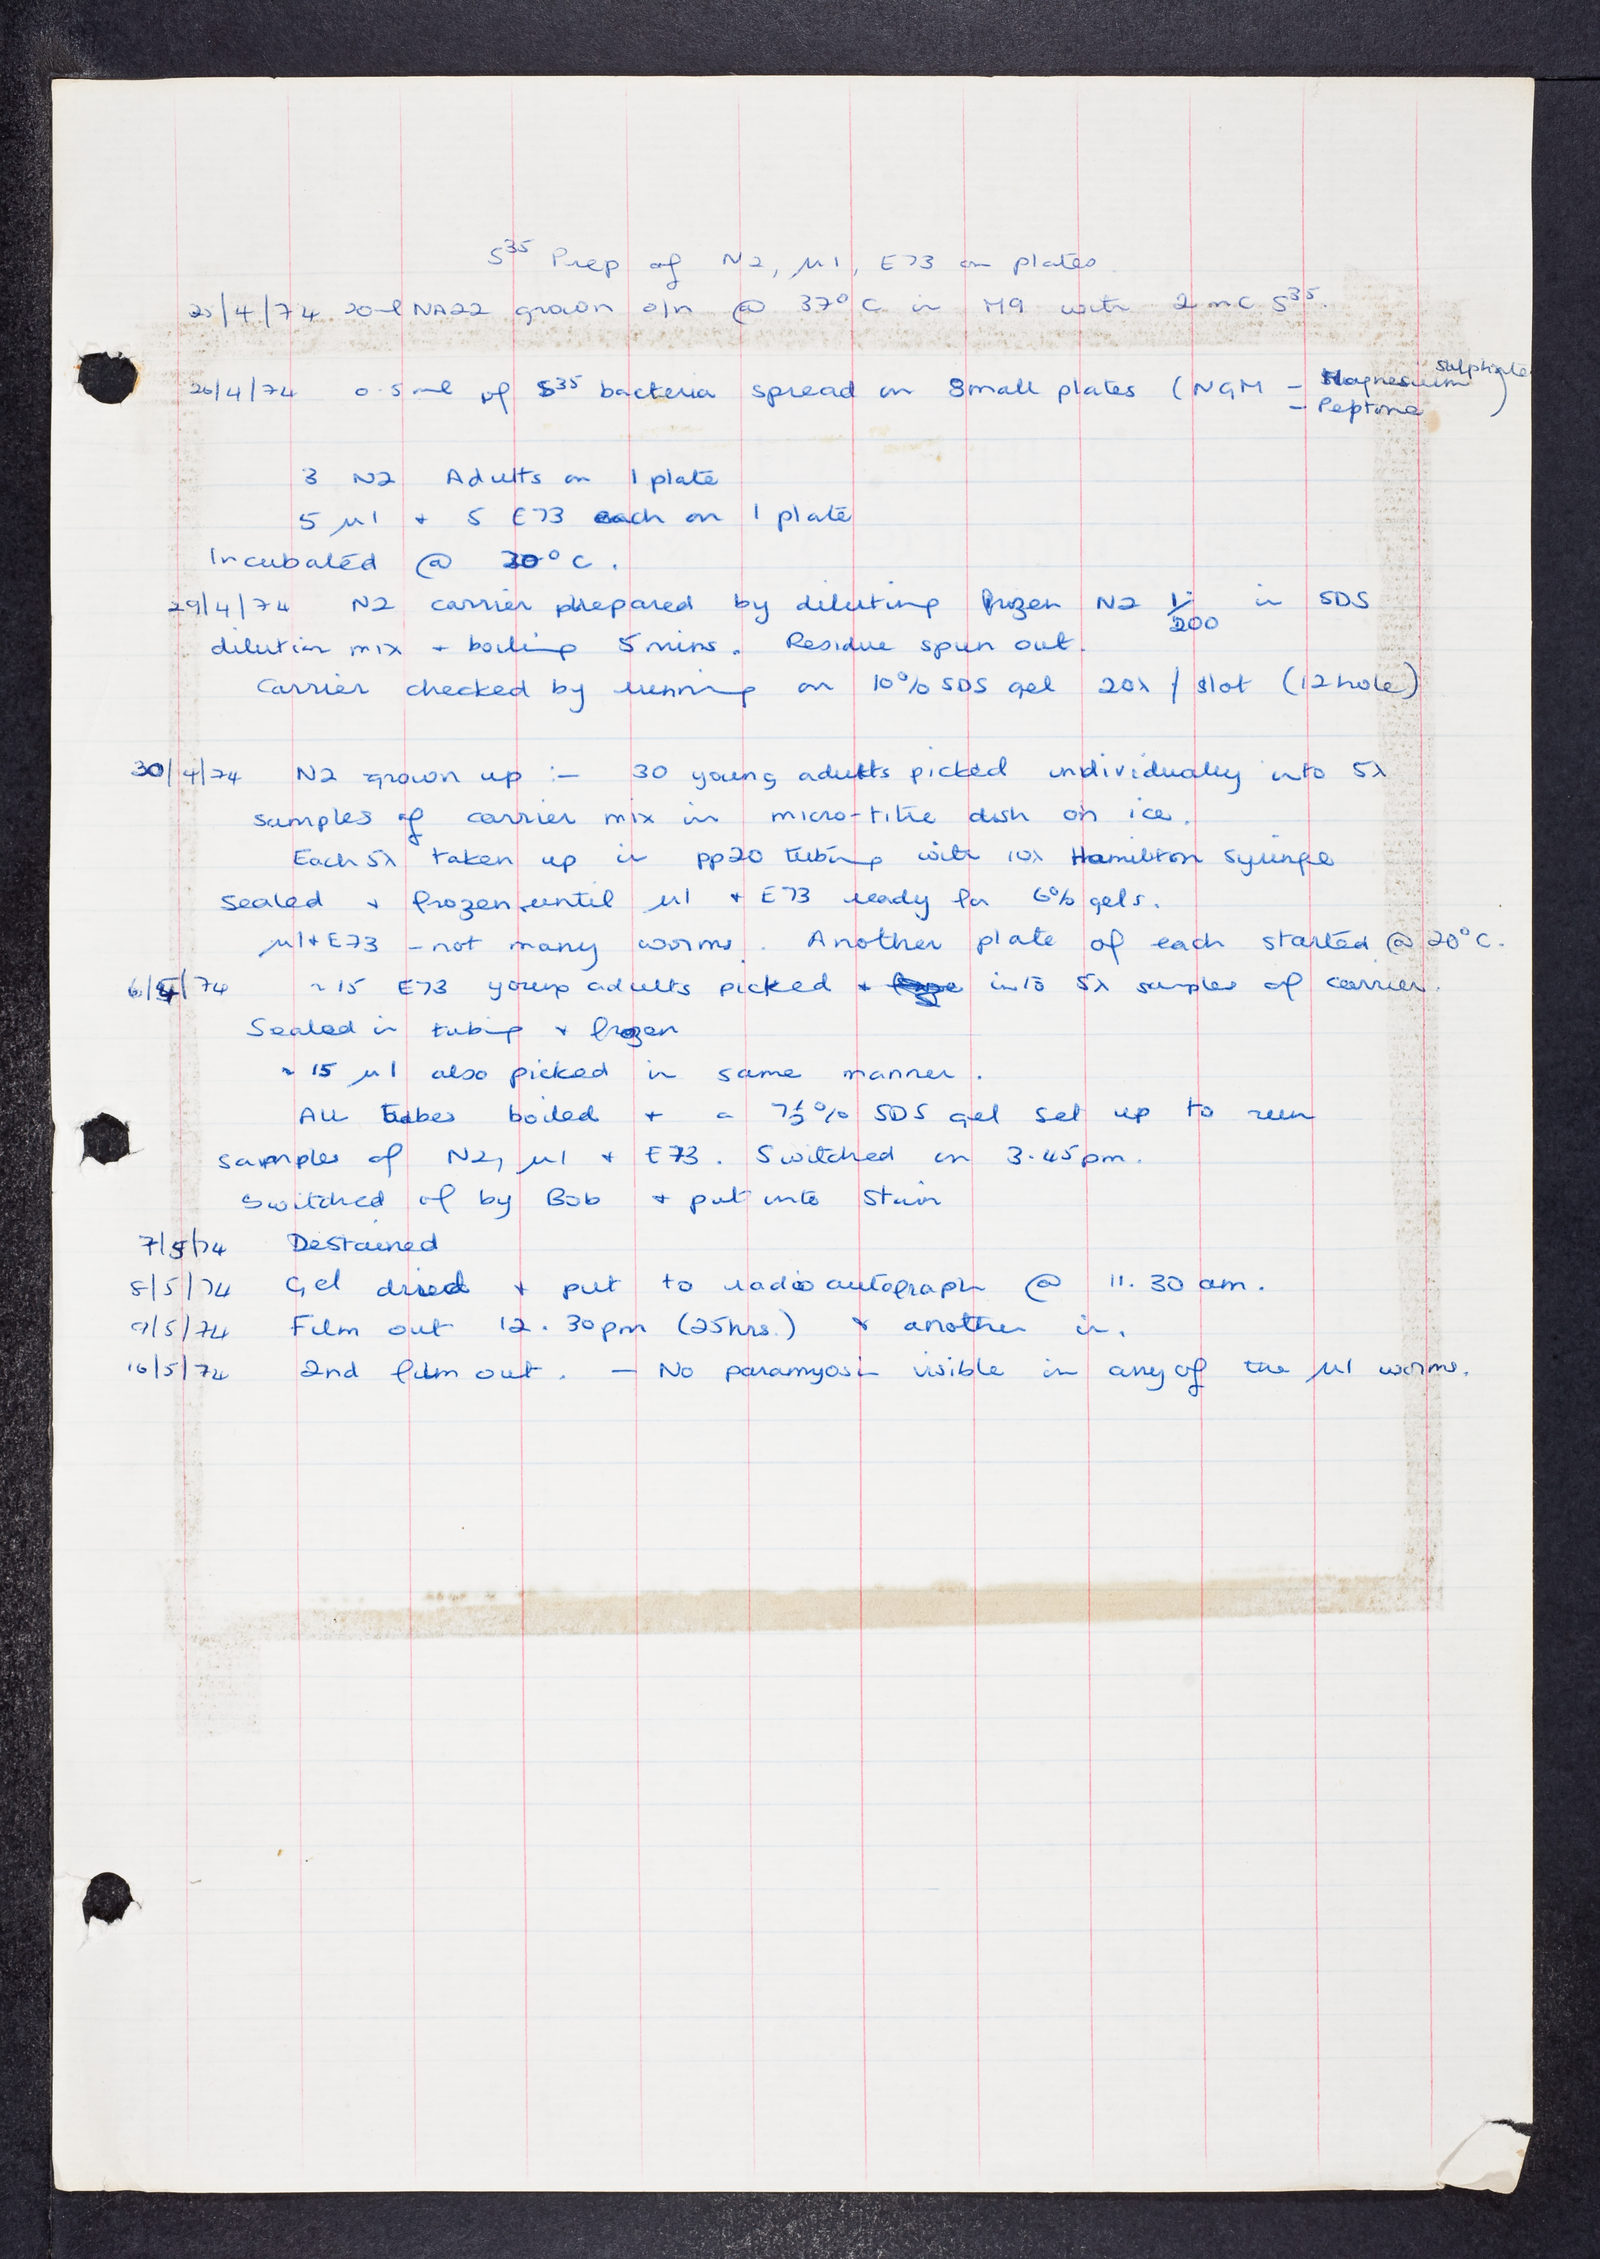 S³⁵ Prep of N2, µ1, E73 on plates
25/4/74 20ml NA22 grown o/n @ 37°C in M9 with 2 mC S³⁵.
26/4/74 0.5ml of S³⁵ bacteria spread on small plates (NGM - Magnesium sulphate
- Peptone)
3 N2 Adults on 1 plate
5 µ1 + 5 E73 each on 1 plate
Incubated @ 20°C.
29/4/74 N2 carrier prepared by diluting frozen N2 1/200 in SDS
dilution mix + boiling 5 mins. Residue spun out.
Carrier checked by running on 10% SDS gel 20λ / slot (12 hole)
30/4/74 N2 grown up :- 30 young adults picked individually into 5λ
samples of carrier mix in micro-titre dish on ice.
Each 5λ taken up in pp20 tubing with 10λ Hamilton syringe
sealed + frozen until µ1 + E73 ready for 6% gels.
µ1+E73 - not many worms. Another plate of each started @ 20°C.
6/5/74 ~15 E73 young adults picked + into 5λ samples of carrier.
Sealed in tubing + frozen
~ 15 µ1 also picked in same manner.
All tubes boiled + a 7½% SDS gel set up to run
samples of N2, µ1 + E73. Switched on 3.45pm.
Switched of by Bob + put into Stain
7/5/74 Destained
8/5/74 Gel dried + put to radioautograph @ 11.30 am.
9/5/74 Film out 12.30pm (25hrs.) + another in.
16/5/74 2nd film out. - No paramyosin visible in any of the µ1 worms.